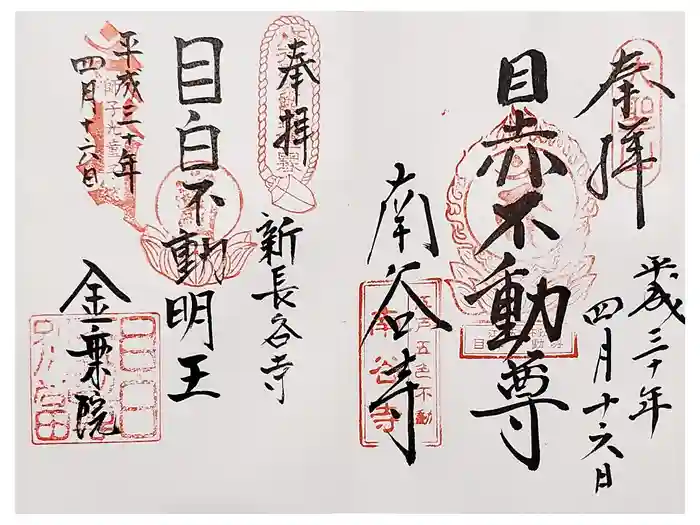 奉拝
平成三十年
四月十六日
目赤不動尊
南谷寺
江戸五色不動
南谷寺
奉拝
新長谷寺
目白不動明王
平成三十年
四月十六日
金乗院